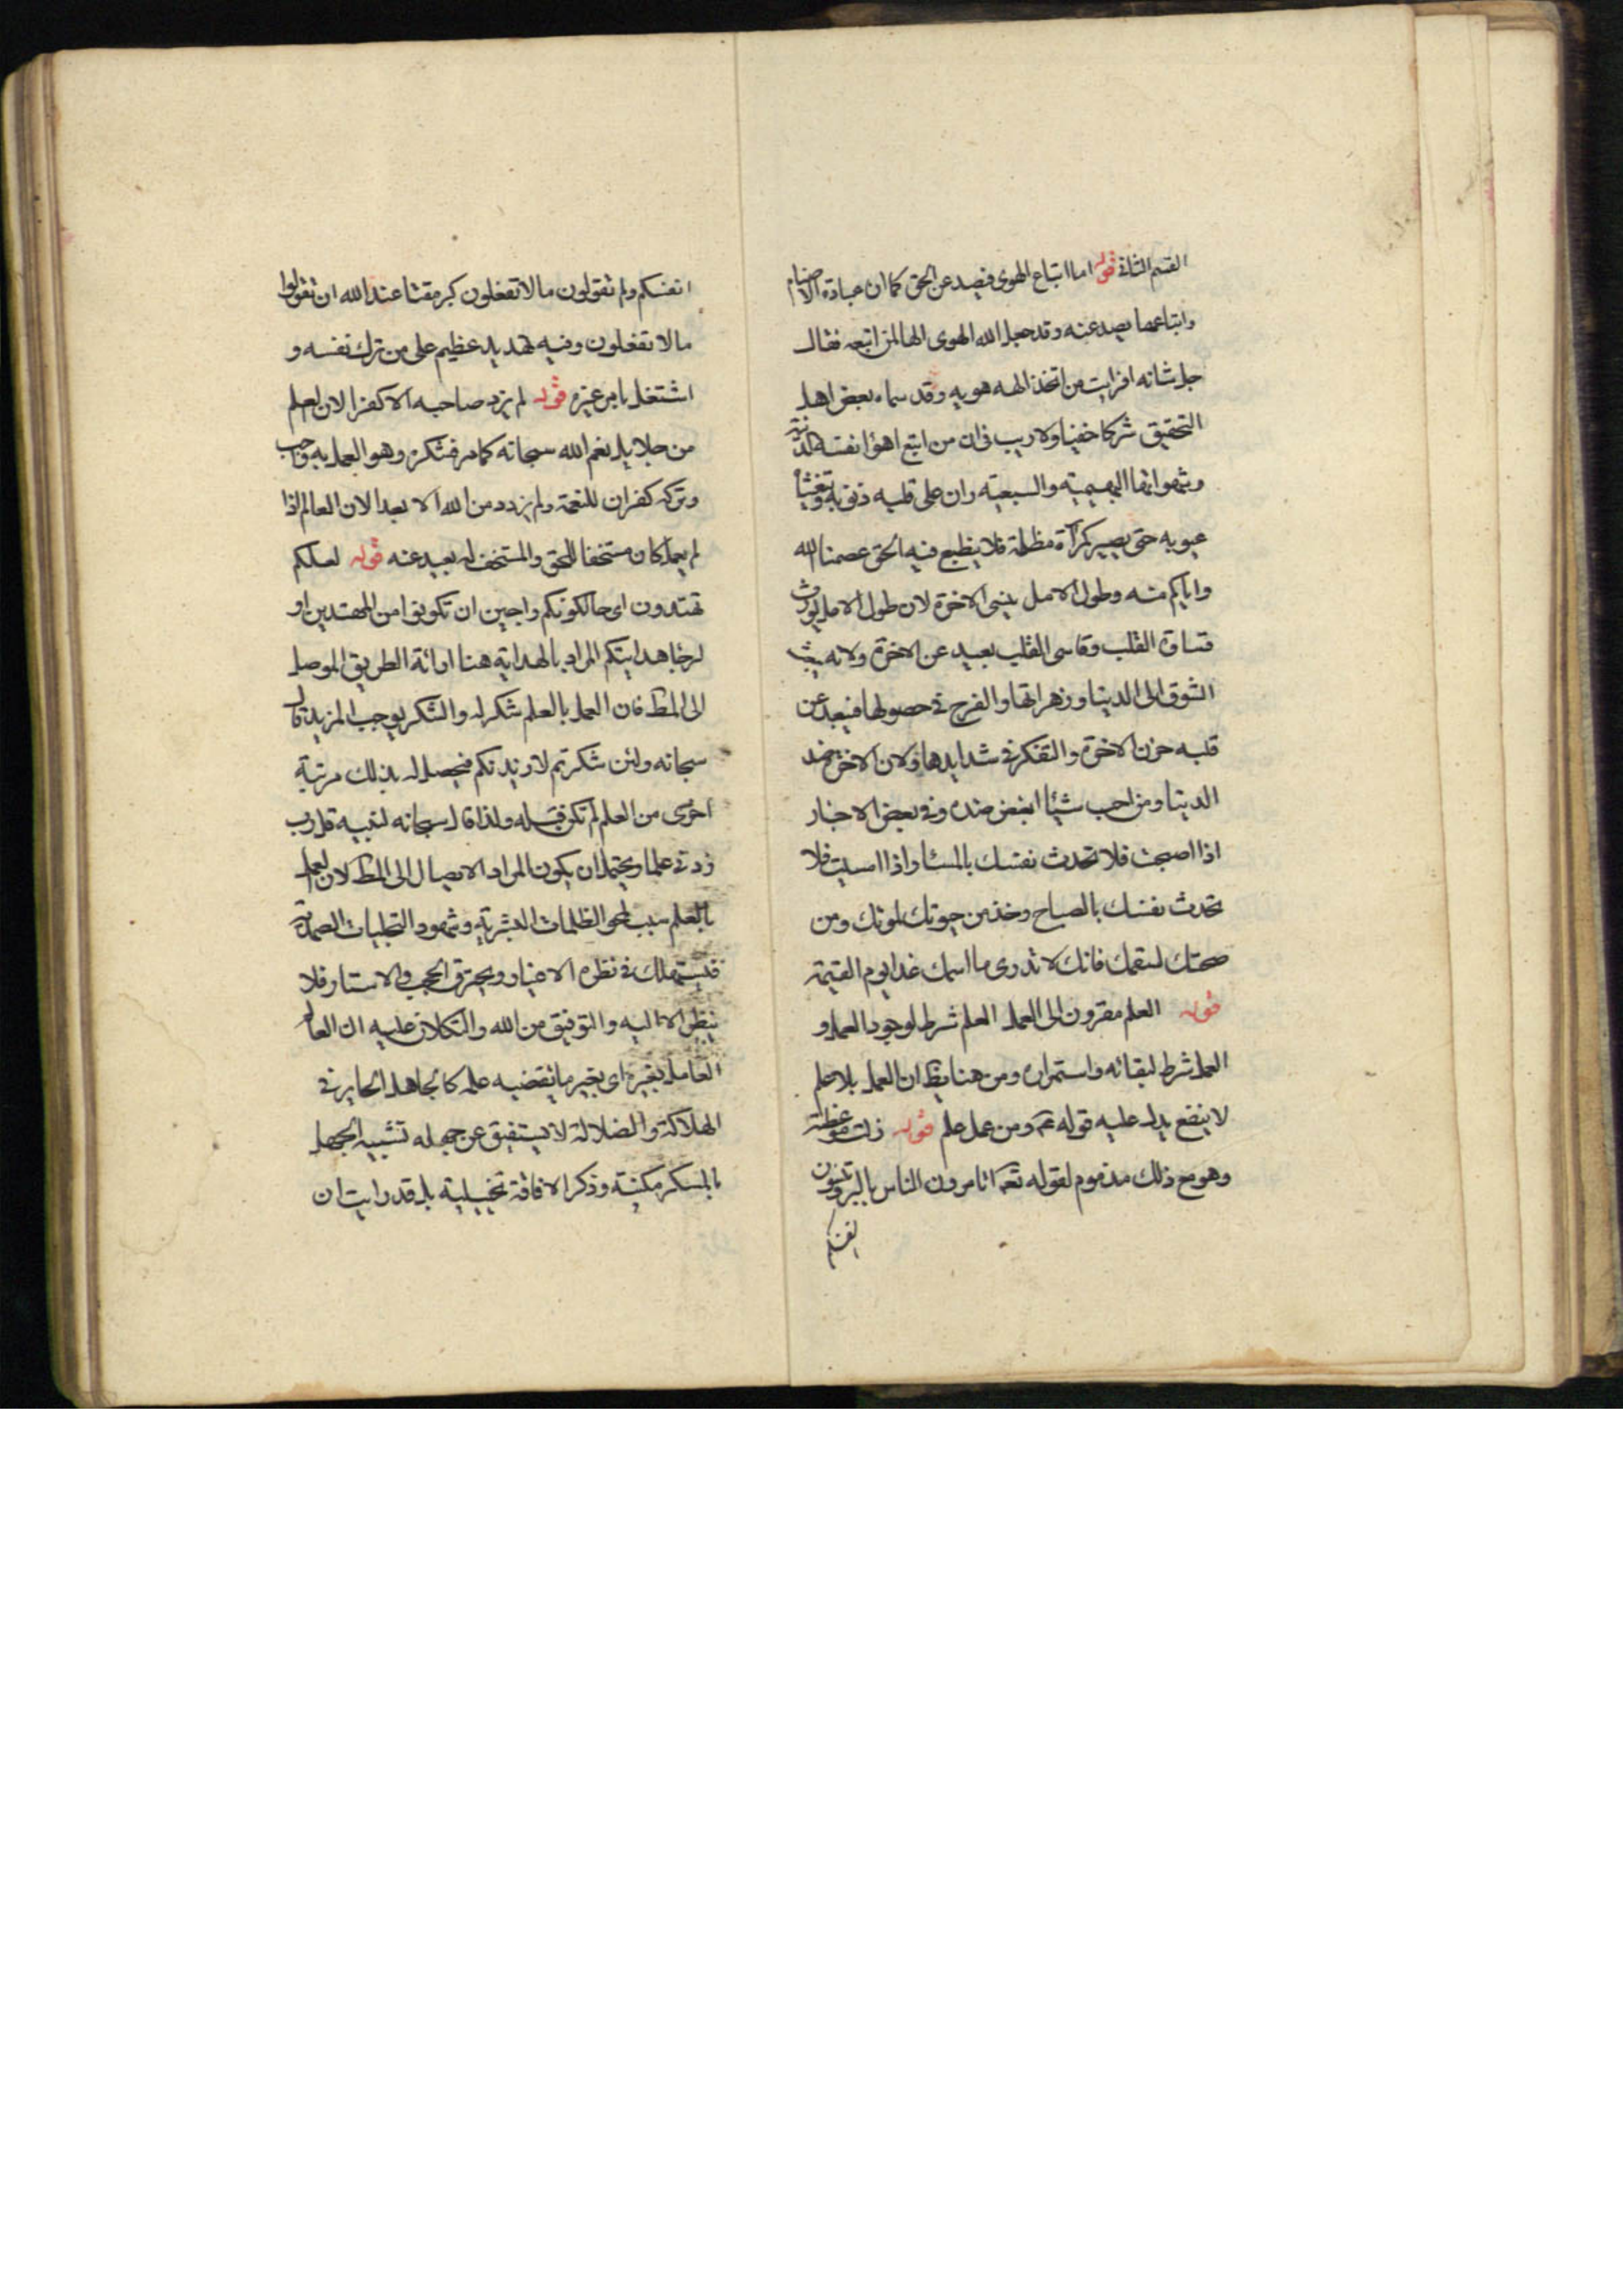 القسم الثاني قوله اما اتباع الهوى فيصد عن الحق كما ان عبادة الاصنام
واتباعها يصد عنه وقد جعل الله الهوى الها لمن اتبعه فقال
جل شانه افرايت من اتخذ الهه هويه وقد سماه بعض اهل
التحقيق شركا خفيا ولا ريب في ان من اتبع اهواء نفسه
وشهواتها البهيمية والسبعية ران على قلبه ذنوبه
عيوبه حتى يصير كمرآة مظلمة فلا ينطبع فيه الحق عصمنا الله
واياكم منه وطول الامل ينسى الاخرة لان طول الامل يورث
قساوة القلب وقاسى القلب بعيد عن الاخرة ولانه يبث
الشوق الى الدنيا وزهراتها والفرح في حصولها فيبعد عن
قلبه حزن الاخرة والتفكر في شدايدها ولان الاخرة ضد
الدنيا ومن احب شيئا ابغض ضده وفي بعض الاخبار
اذا اصبحت فلا تحدث نفسك بالمساء واذا امسيت فلا
تحدث نفسك بالصباح وخذ من حيوتك لموتك ومن
صحتك لسقمك فانك لا تدرى ما اسمك غدا يوم القيمة
قوله العلم مقرون الى العمل العلم شرط لوجود العمل و
العمل شرط لبقائه واستمراره ومن هنا يظ ان العمل بلا علم
لا ينفع يدل عليه قوله ع ومن عمل علم قوله زلت موعظته
وهو مع ذلك مذموم لقوله تعم اتامرون الناس بالبر وتنسون
انفسكم
انفسكم ولم تقولون ما لا تفعلون كبر مقتا عند الله ان تقولوا
ما لا تفعلون وفيه تهديد عظيم على من ترك نفسه و
اشتغل بامر غيره قوله لم يزد صاحبه الا كفرا لان العلم
من جلايل نعم الله سبحانه كما مر فشكره وهو العمل به واجب
وتركه كفران للنعمة ولم يزدد من الله الا بعدا لان العالم اذا
لم يعمل كان مستخفا للحق والمستخف له بعيد عنه قوله لعلكم
تهتدون اى حالكونكم راجين ان تكونوا من المهتدين او
لرجاء هدايتكم المراد بالهداية هنا ارائة الطريق الموصل
الى المط فان العمل بالعلم شكر له والشكر يوجب المزيد قال
سبحانه ولئن شكرتم لازيدنكم فيحصل له بذلك مرتبة
اخرى من العلم لم تكن قبله ولذا قال سبحانه لنبيه قل رب
زدني علما ويحتمل ان يكون المراد الايصال الى المط لان العمل
بالعلم سبب لمحو الظلمات البشرية وشهود التجليات الصمدية
فيستهلك في نظره الاغيار ويحترق الحجب والاستار فلا
ينظر الا اليه والتوفيق من الله والتكلان عليه ان العالم
العامل بغيره اى بغير ما يقتضيه علمه كالجاهل الحاير في
الهلاكة والضلالة لا يستفيق عن جهله تشبيه الجهل
بالسكر مكنية وذكر الافاقة تخييلية بل قد رايت ان